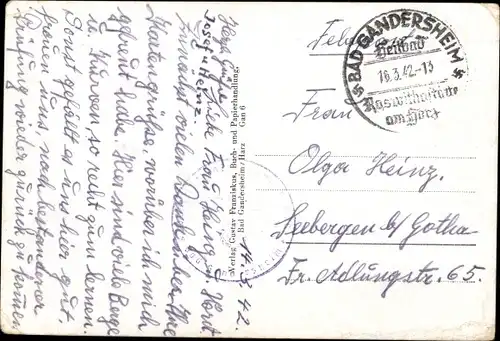 Feldpost
BAD GANDERSHEIM
Heilbad
16.3.42-13
Roswithastadt
am Harz
Frau
Olga Heinz.
Seebergen b/ Gotha
Fr. Adlungstr. 65.
Verlag Gustav Franziskus, Buch- und Papierhandlung,
Bad Gandersheim/Harz
Gan 6
14.3.42.
Liebe Frau Heinz u. Horst
Zunächst vielen Dank für Ihre
Kartengrüße, worüber ich mich
gefreut habe. Hier sind viele Berge
u. Kurven, so recht zum lernen.
Sonst gefällt es uns hier gut,
freuen uns, nach bestandener
Prüfung wieder zurück zu kommen
Herzl. Grüße
Josef u. Heinz.